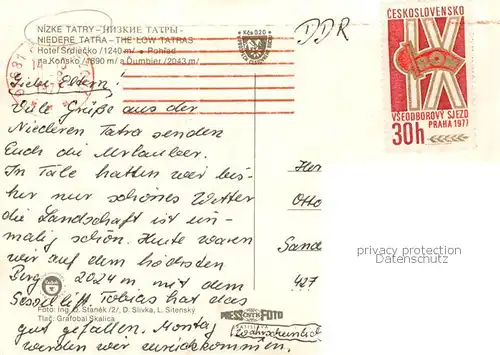 NÍZKE TATRY - НИЗКИЕ ТАТРЫ -
NIEDERE TATRA - THE LOW TATRAS
Hotel Srdiečko /1240 m/ • Pohľad
na Konsko /1890 m/ a Ďumbier /2043 m/
Kčs 0,20
DDR
ČESKOSLOVENSKO
IX
ROH
VŠEODBOROVÝ SJEZD
PRAHA 1977
30h
Liebe Eltern!
Viele Grüße aus der
Niederen Tatra senden
Euch die Urlauber.
In Tale hatten wir bis-
her nur schönes Wetter
die Landschaft ist ein-
malig schön. Heute waren
wir auf dem höchsten
Berg 2024 m mit dem
Sessellift. Tobias hat das
gut gefallen. Montag (wahrscheinlich)
werden wir zurückkommen.
Otto
Sand
427
privacy protection
Datenschutz
Foto: Ing. O. Staněk /2/, D. Slivka, L. Sitenský
Tlač: Grafobal Skalica
PRESS FOTO
BRATISLAVA